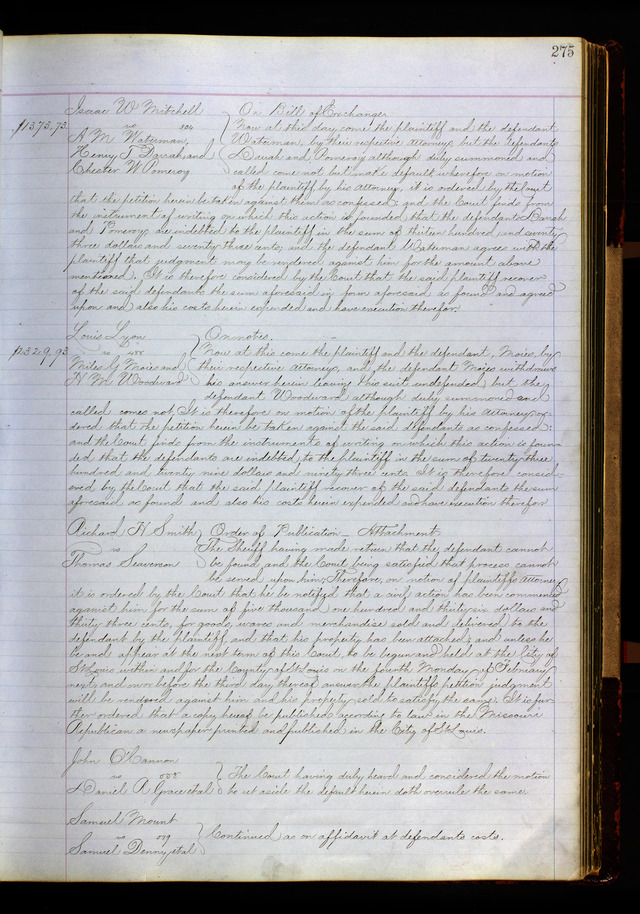 275
Isaac W Mitchell } On Bill of Exchange
$1373.73. vs 104 Now at this day come the plaintiff and the defendant
A. M. Waterman, Waterman, by their respective attorneys, but the defendants
Henry T. Darrah, and Darrah and Pomeroy although duly summoned and
Chester W Pomeroy called come not but make default wherefore on motion
of the plaintiff by his Attorney, it is ordered by the Court
that the petition herein be taken against them as confessed; and the Court finds from
the instrument of writing on which this action is founded that the defendants Darah
and Pomeroy are indebted to the plaintiff in the sum of thirteen hundred and seventy
three dollars and seventy three cents; and the defendant Waterman agrees with the
plaintiff that judgment may be rendered against him for the amount above
mentioned. It is therefore considered by the Court that the said plaintiff recover
of the said defendants the sum aforesaid in form aforesaid so found and agreed
upon and also his costs herein expended and have execution therefor.
Louis Lyon } On notes.
$2329.93 vs Now at this come the plaintiff and the defendant, Moies, by
Miles G Moies and their respective Attorneys, and the defendant Moies withdraws
H. M. Woodward his answer herein leaving this suit undefended but the
defendant Woodward although duly summoned and
called comes not, It is therefore on motion of the plaintiff by his Attorney or-
dered that the petition herein be taken against the said defendants as confessed:
and the Court finds from the instruments of writing on which this action is foun
ded that the defendants are indebted to the plaintiff in the sum of twenty three
hundred and twenty nine dollars and ninety three cents It is therefore consid-
ered by the Court that the said plaintiff recover of the said defendants the sum
aforesaid so found and also his costs herein expended and have execution therefor
Richard H Smith } Order of Publication — Attachment.
vs The Sheriff having made return that the defendant cannot
Thomas Severson be found, and the Court being satisfied that process cannot
be served upon him; Therefore, on motion of plaintiffs Attorney
it is ordered by the Court that he be notified that a civil action has been commenced
against him for the sum of five thousand one hundred and thirty six dollars and
thirty three cents, for goods, wares and merchandise sold and delivered to the
defendant by the plaintiff and that his property has been attached; and unless he
be and appear at the next term of this Court, to be begun and held at the City of
St Louis within and for the County of St Louis on the fourth Monday of February
next, and on or before the third day thereof answer the plaintiffs petition judgment
will be rendered against him and his property sold to satisfy the same. It is fur
ther ordered that a copy hereof be published according to law in the Missouri
Republican a newspaper printed and published in the City of St Louis.
John O'Cannon
vs 558 } The Court having duly heard and considered the motion
Daniel A Grace et al to set aside the default herein doth overrule the same.
Samuel Mount
vs 539 } Continued as on affidavit at defendants costs.
Samuel Denny et al